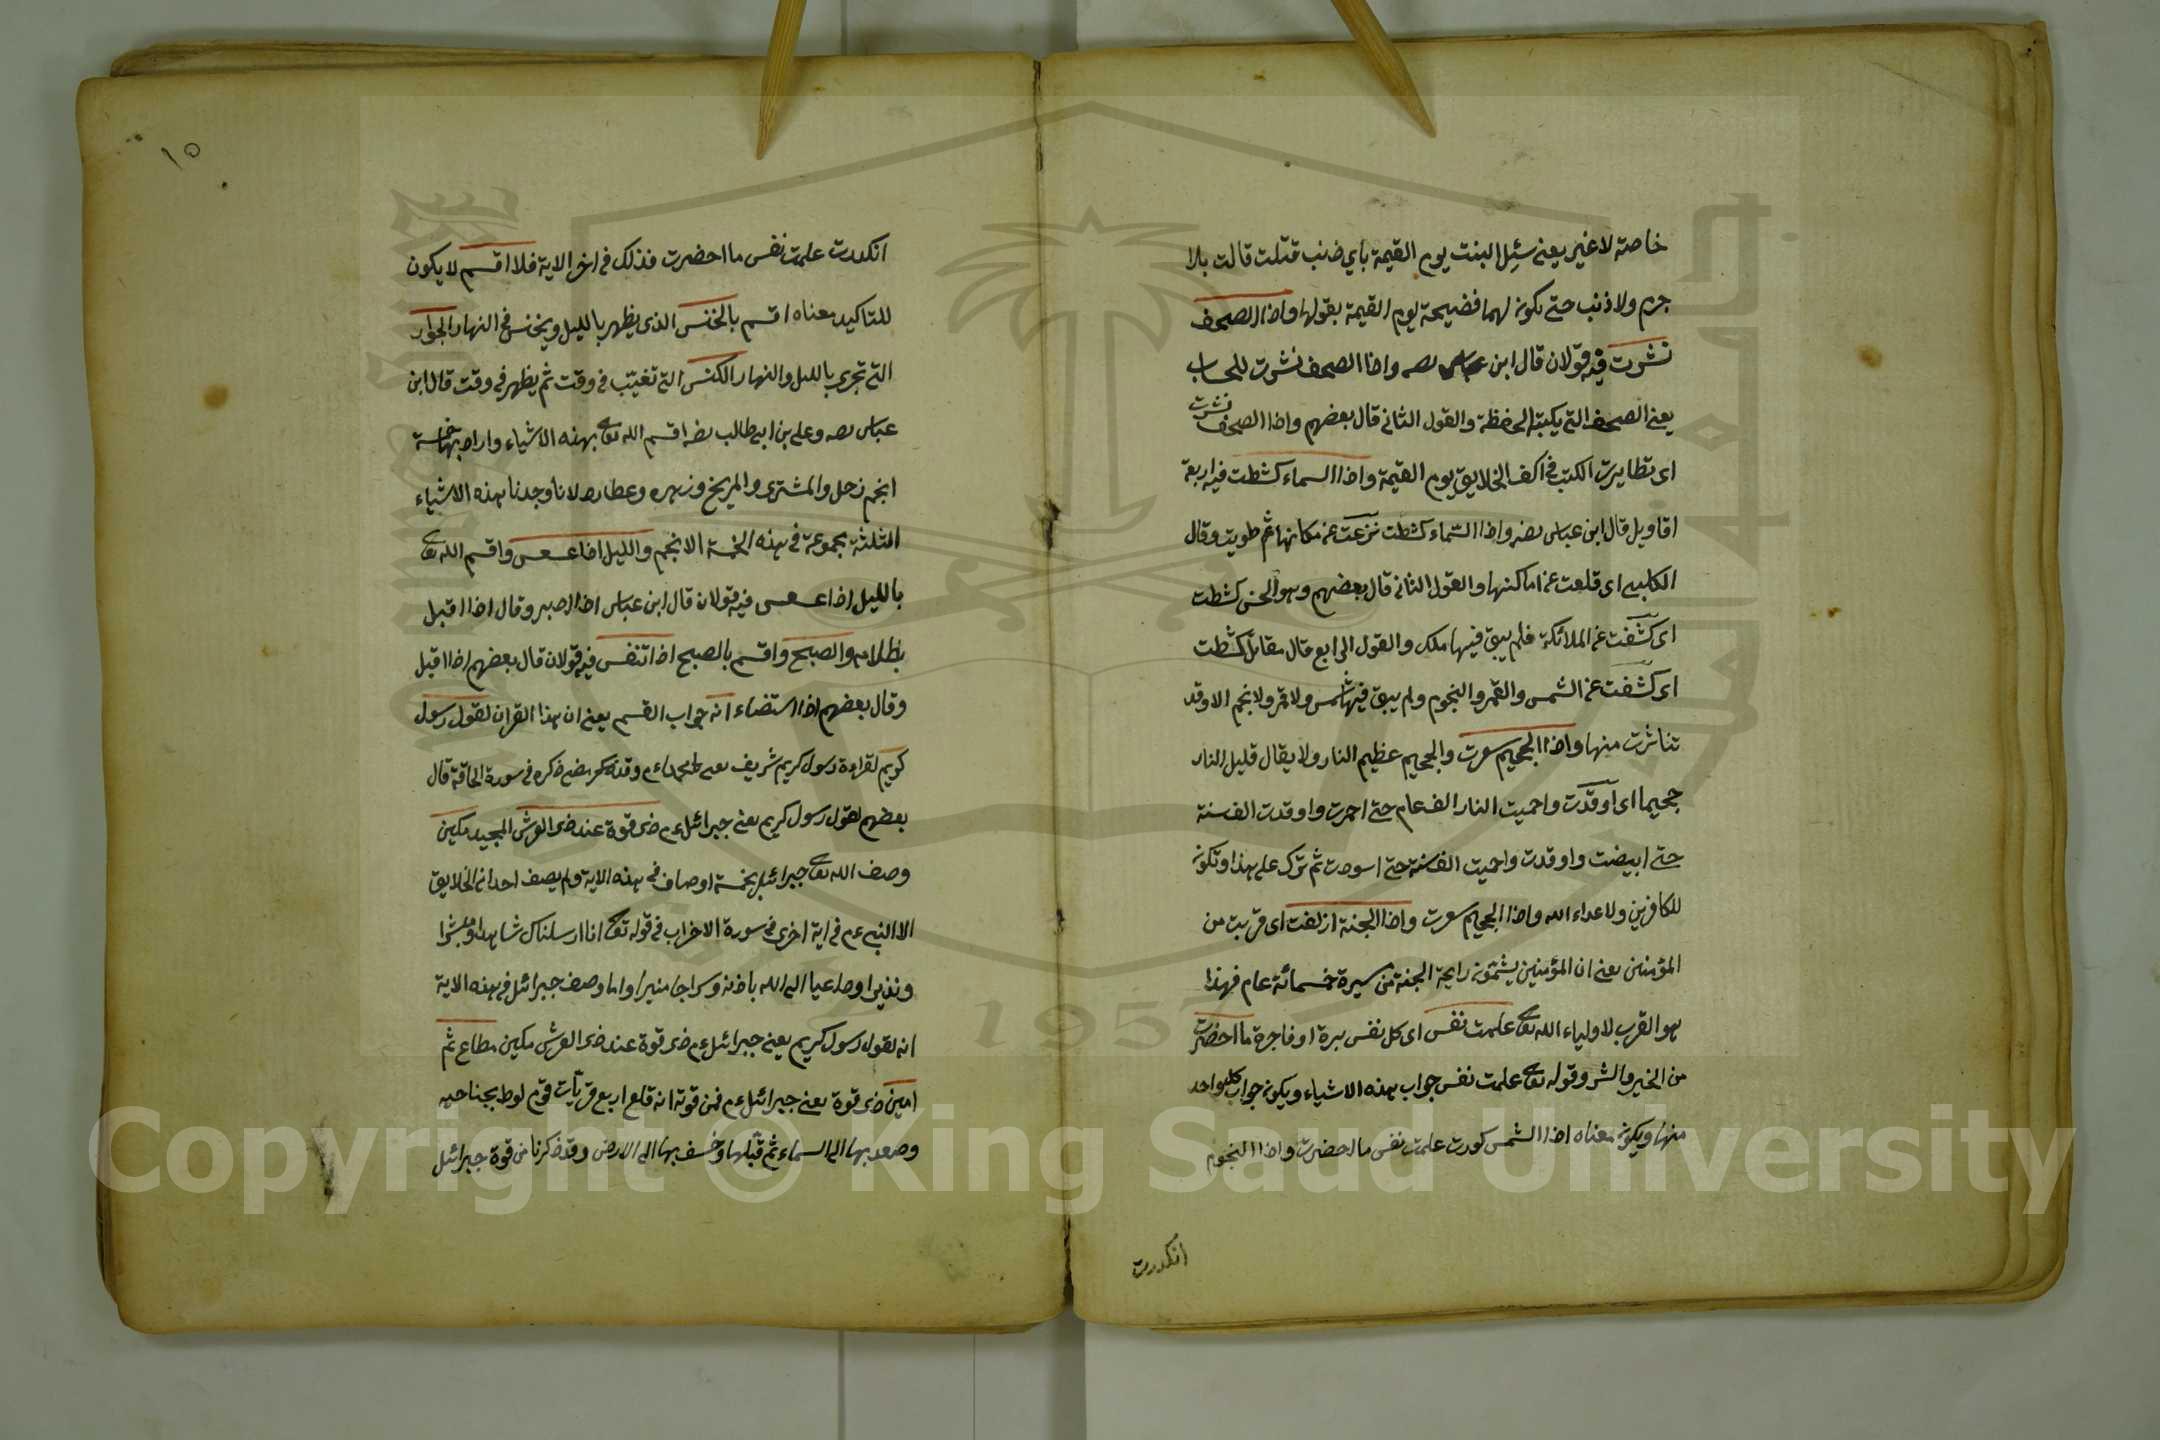 خاصة لا غير يعنى سئل البنت يوم القيمة باي ذنب قتلت قالت بلا
جرم ولا ذنب حتى يكون لهما فضيحة يوم القيمة بقولها واذا الصحف
نشرت فيه قولان قال ابن عباس رضه واذا الصحف نشرت للحساب
يعنى الصحف التى يكتبه الحفظة والقول الثانى قال بعضهم واذا الصحف نشرت
اى تطايرت الكتب فى اكف الخلايق يوم القيمة واذا السماء كشطت فيه اربعة
اقاويل قال ابن عباس رضه واذا السماء كشطت نزعت عن مكانها ثم طويت وقال
الكلبى اى قلعت عن اماكنها والقول الثانى قال بعضهم وهو الحسن كشطت
اى كشفت عن الملائكة فلم يبق فيها ملك والقول الرابع قال مقاتل كشطت
اى كشفت عن الشمس والقمر والنجوم ولم يبق فيها شمس ولا قمر ولا نجم الا وقد
تناثرت منها واذا الجحيم سعرت والجحيم عظيم النار ولا يقال قليل النار
جحيما اى اوقدت واحميت النار الف عام حتى احمرت واوقدت الف سنة
حتى ابيضت واوقدت واحميت الف سنة حتى اسودت ثم ترك على هذا وتكون
للكافرين ولاعداء الله واذا الجحيم سعرت واذا الجنة ازلفت اى قربت من
المؤمنين يعنى ان المؤمنين يشمون رايحة الجنة من مسيرة خمسمائة عام فهذا
هو القرب لاولياء الله تعالى علمت نفس اى كل نفس برة او فاجرة ما احضرت
من الخير والشر وقوله تعالى علمت نفس جواب هذه الاشياء ويكون جواب كل واحد
منها ويكون معناه اذا الشمس كورت علمت نفس ما احضرت واذا النجوم
انكدرت
١٥
انكدرت علمت نفس ما احضرت فذلك فى اخر الاية فلا اقسم لا يكون
للتاكيد معناه اقسم بالخنس الذى يظهر بالليل ويخنس فى النهار الجوار
التى تجرى بالليل والنهار الكنس التى تغيب فى وقت ثم يظهر فى وقت قال ابن
عباس رضه وعلى بن ابى طالب رضه اقسم الله تعالى بهذه الاشياء واراد بها خمسة
انجم زحل والمشترى والمريخ وزهره وعطارد لانا وجدنا هذه الاشياء
الثلثة مجموعة فى هذه الخمسة الانجم والليل اذا عسعس واقسم الله تعالى
بالليل اذا عسعس فيه قولان قال ابن عباس اذا ادبر وقال اذا اقبل
بظلامه والصبح واقسم بالصبح اذا تنفس فيه قولان قال بعضهم اذا اقبل
وقال بعضهم اذا استضاء انه جواب القسم يعنى ان هذا القران لقول رسول
كريم لقراءة رسول كريم شريف يعنى محمداءم وقد مضى ذكره فى سورة الحاقة قال
بعضهم لقول رسول كريم يعنى جبرائل ءم ذى قوة عند ذى العرش المجيد مكين
وصف الله تعالى جبرائيل بخمسة اوصاف فى هذه الاية ولم يصف احدا من الخلايق
الا النبى ءم فى اية اخرى فى سورة الاحزاب فى قوله تعالى انا ارسلناك شاهدا ومبشرا
ونذيرا وداعيا الى الله باذنه وسراجا منيرا واما وصف جبرائل فى هذه الاية
انه لقول رسول كريم يعنى جبرائل ءم ذى قوة عند ذى العرش مكين مطاع ثم
امين ذى قوة يعنى جبرائل ءم فمن قوته انه قلع اربع قريات قوم لوط بجناحيه
وصعد بها الى السماء ثم قبلها وخسف بها الى الارض وقد ذكرنا من قوة جبرائل
Copyright © King Saud University
1957